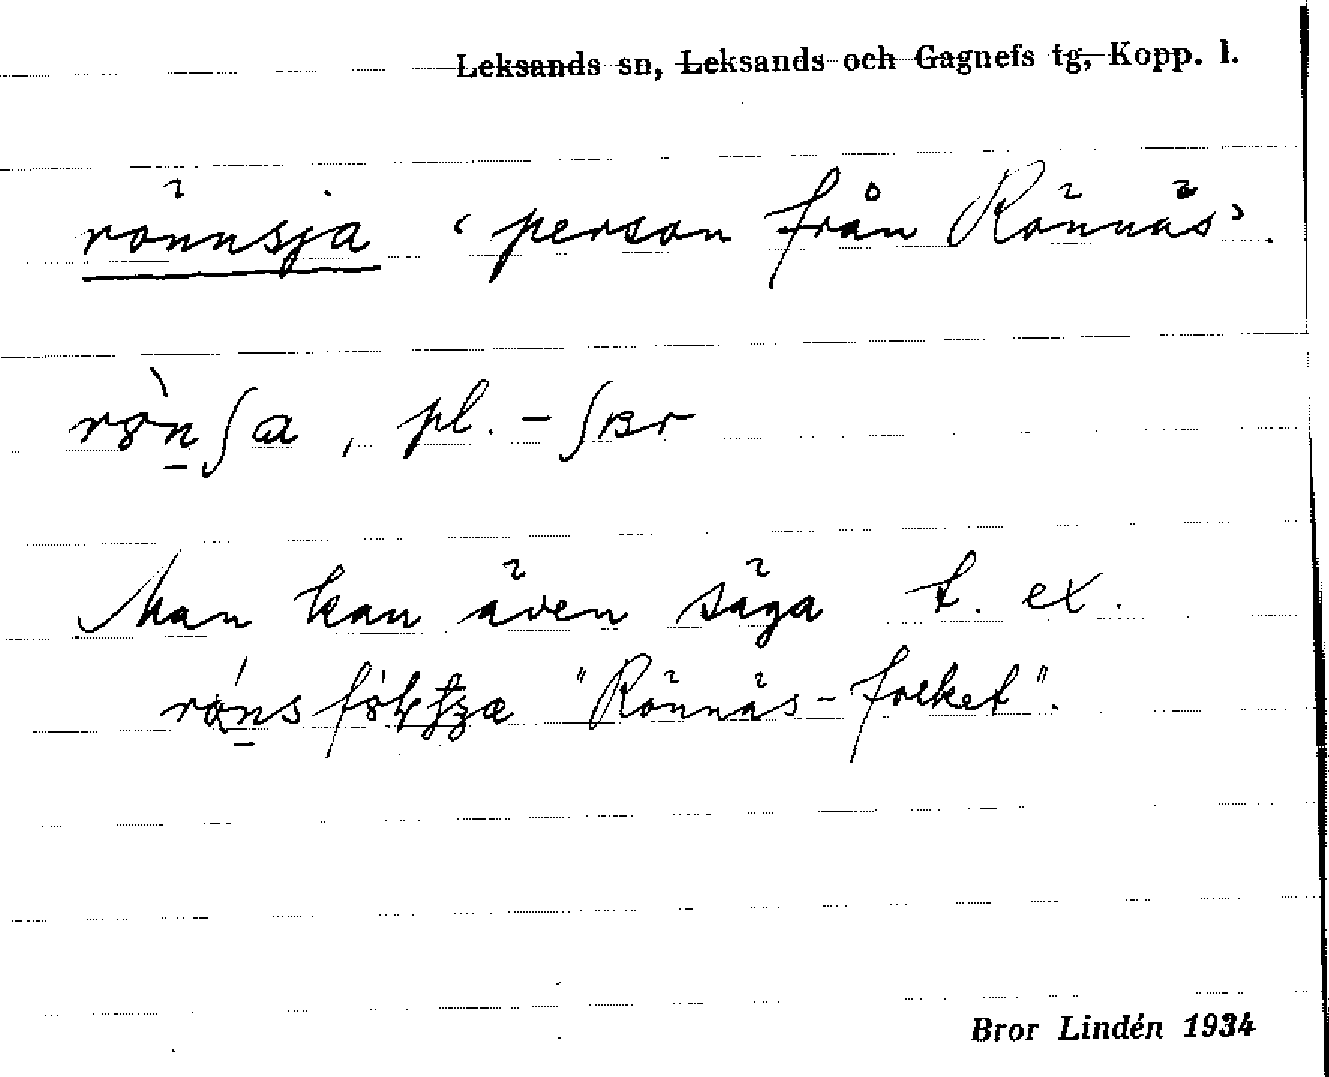 Leksands sn, Leksands och Gagnefs tg, Kopp. l.
rönnsja ‘person från Rönnäs’.
pl.
Man kan även säga t. ex.
"Rönnäs-folket".
Bror Lindén 1934